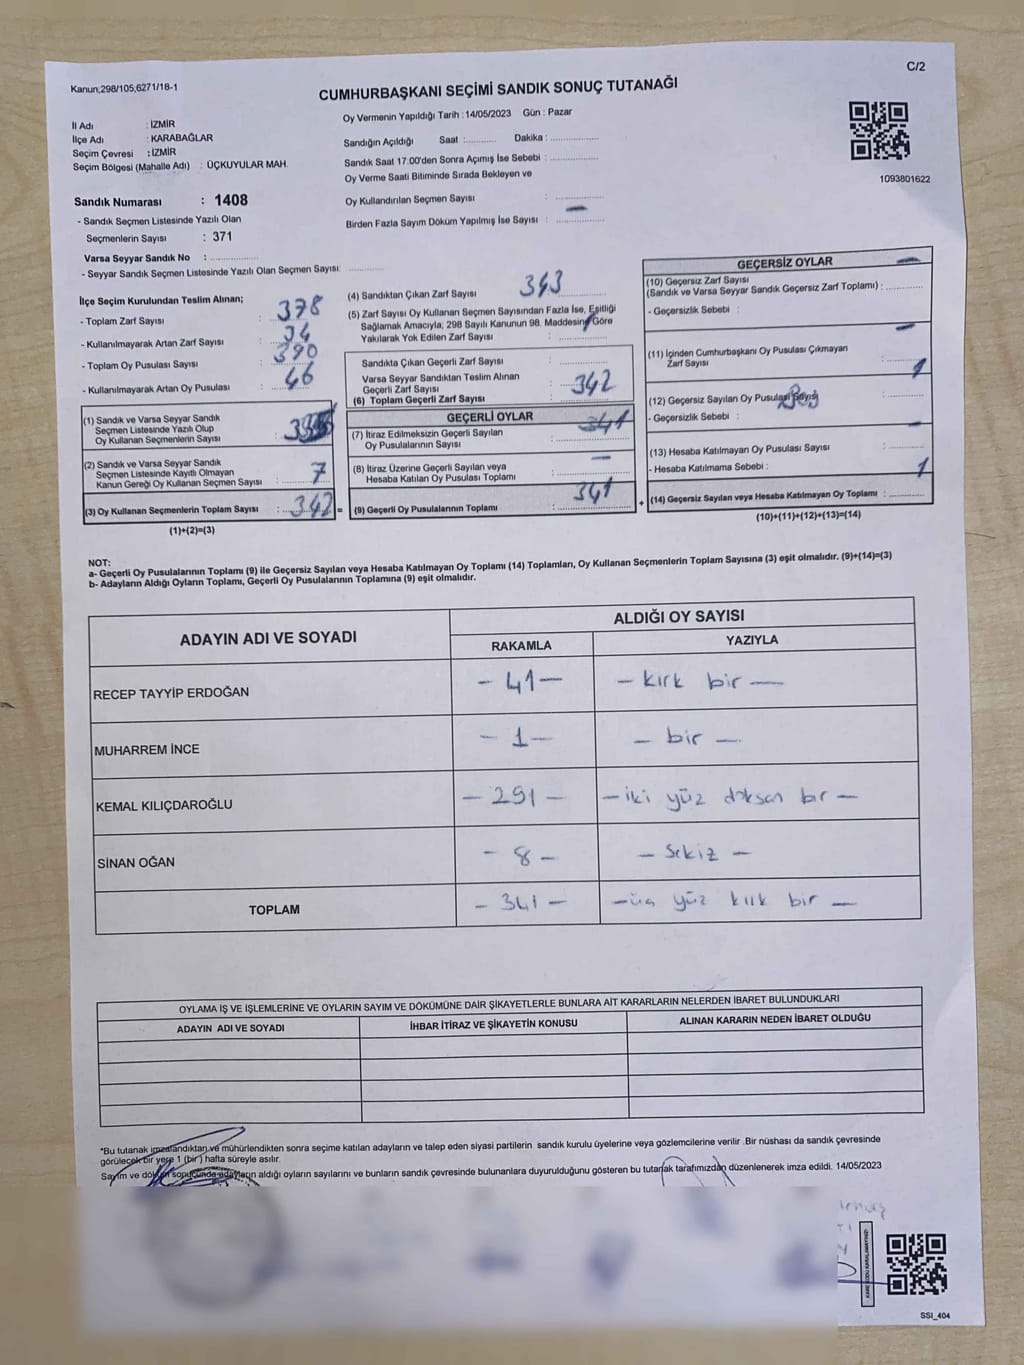 Kanun;298/105,6271/18-1
C/2
CUMHURBAŞKANI SEÇİMİ SANDIK SONUÇ TUTANAĞI
Oy Vermenin Yapıldığı Tarih : 14/05/2023 Gün : Pazar
İl Adı : İZMİR
İlçe Adı : KARABAĞLAR
Seçim Çevresi : İZMİR
Seçim Bölgesi (Mahalle Adı) : ÜÇKUYULAR MAH.
Sandığın Açıldığı Saat :............ Dakika :...............
Sandık Saat 17.00'den Sonra Açımış İse Sebebi :...............
Oy Verme Saati Bitiminde Sırada Bekleyen ve
Oy Kullandırılan Seçmen Sayısı : ...............
Birden Fazla Sayım Döküm Yapılmış İse Sayısı : — ...............
1093801622
Sandık Numarası : 1408
- Sandık Seçmen Listesinde Yazılı Olan
Seçmenlerin Sayısı : 371
Varsa Seyyar Sandık No :...............
- Seyyar Sandık Seçmen Listesinde Yazılı Olan Seçmen Sayısı: ............
İlçe Seçim Kurulundan Teslim Alınan;
- Toplam Zarf Sayısı : 378
- Kullanılmayarak Artan Zarf Sayısı : 34
- Toplam Oy Pusulası Sayısı : 390
- Kullanılmayarak Artan Oy Pusulası : 46
(1) Sandık ve Varsa Seyyar Sandık
Seçmen Listesinde Yazılı Olup
Oy Kullanan Seçmenlerin Sayısı :
(2) Sandık ve Varsa Seyyar Sandık
Seçmen Listesinde Kayıtlı Olmayan
Kanun Gereği Oy Kullanan Seçmen Sayısı : 7
(3) Oy Kullanan Seçmenlerin Toplam Sayısı : 342 =
(1)+(2)=(3)
(4) Sandıktan Çıkan Zarf Sayısı : 343
(5) Zarf Sayısı Oy Kullanan Seçmen Sayısından Fazla İse, Eşitliği
Sağlamak Amacıyla; 298 Sayılı Kanunun 98. Maddesine Göre
Yakılarak Yok Edilen Zarf Sayısı :
Sandıkta Çıkan Geçerli Zarf Sayısı :
Varsa Seyyar Sandıktan Teslim Alınan
Geçerli Zarf Sayısı :
(6) Toplam Geçerli Zarf Sayısı : 342
GEÇERLİ OYLAR
(7) İtiraz Edilmeksizin Geçerli Sayılan
Oy Pusulalarının Sayısı : 341
(8) İtiraz Üzerine Geçerli Sayılan veya
Hesaba Katılan Oy Pusulası Toplamı : —
(9) Geçerli Oy Pusulalarının Toplamı : 341 +
GEÇERSİZ OYLAR
(10) Geçersiz Zarf Sayısı —
(Sandık ve Varsa Seyyar Sandık Geçersiz Zarf Toplamı) :............
- Geçersizlik Sebebi :
(11) İçinden Cumhurbaşkanı Oy Pusulası Çıkmayan —
Zarf Sayısı :
(12) Geçersiz Sayılan Oy Pusulası Sayısı : 1
- Geçersizlik Sebebi :
(13) Hesaba Katılmayan Oy Pusulası Sayısı :
- Hesaba Katılmama Sebebi :
(14) Geçersiz Sayılan veya Hesaba Katılmayan Oy Toplamı : 1
(10)+(11)+(12)+(13)=(14)
NOT:
a- Geçerli Oy Pusulalarının Toplamı (9) ile Geçersiz Sayılan veya Hesaba Katılmayan Oy Toplamı (14) Toplamları, Oy Kullanan Seçmenlerin Toplam Sayısına (3) eşit olmalıdır. (9)+(14)=(3)
b- Adayların Aldığı Oyların Toplamı, Geçerli Oy Pusulalarının Toplamına (9) eşit olmalıdır.
ADAYIN ADI VE SOYADI
ALDIĞI OY SAYISI
RAKAMLA YAZIYLA
RECEP TAYYİP ERDOĞAN - 41 — - kırk bir —
MUHARREM İNCE - 1 — - bir —
KEMAL KILIÇDAROĞLU - 291 - - iki yüz doksan bir -
SİNAN OĞAN - 8 - - Sekiz -
TOPLAM - 341 - - üç yüz kırk bir -
OYLAMA İŞ VE İŞLEMLERİNE VE OYLARIN SAYIM VE DÖKÜMÜNE DAİR ŞİKAYETLERLE BUNLARA AİT KARARLARIN NELERDEN İBARET BULUNDUKLARI
ADAYIN ADI VE SOYADI İHBAR İTİRAZ VE ŞİKAYETİN KONUSU ALINAN KARARIN NEDEN İBARET OLDUĞU
*Bu tutanak imzalandıktan ve mühürlendikten sonra seçime katılan adayların ve talep eden siyasi partilerin sandık kurulu üyelerine veya gözlemcilerine verilir .Bir nüshası da sandık çevresinde
görülecek bir yere 1 (bir ) hafta süreyle asılır.
Sayım ve döküm sonucunda adayların aldığı oyların sayılarını ve bunların sandık çevresinde bulunanlara duyurulduğunu gösteren bu tutanak tarafımızdan düzenlenerek imza edildi. 14/05/2023
KARE KODU KARALAMAYINIZ!
SSI_404